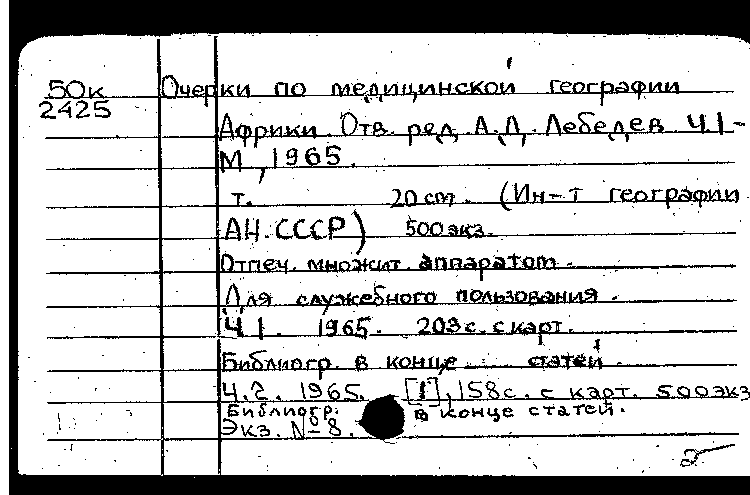 50к Очерки по медицинской географии
2425
Африки. Отв. ред. А.Д. Лебедев. Ч.1-
М., 1965.
т. 20 cm. (Ин-т географии
АН СССР) 500 экз.
Отпеч. множит. аппаратом.
Для служебного пользования.
Ч.1. 1965. 203 с. с карт.
Библиогр. в конце статей.
Ч.2. 1965. [1], 158 с. с карт. 500 экз
Библиогр. в конце статей.
Экз. № 8.